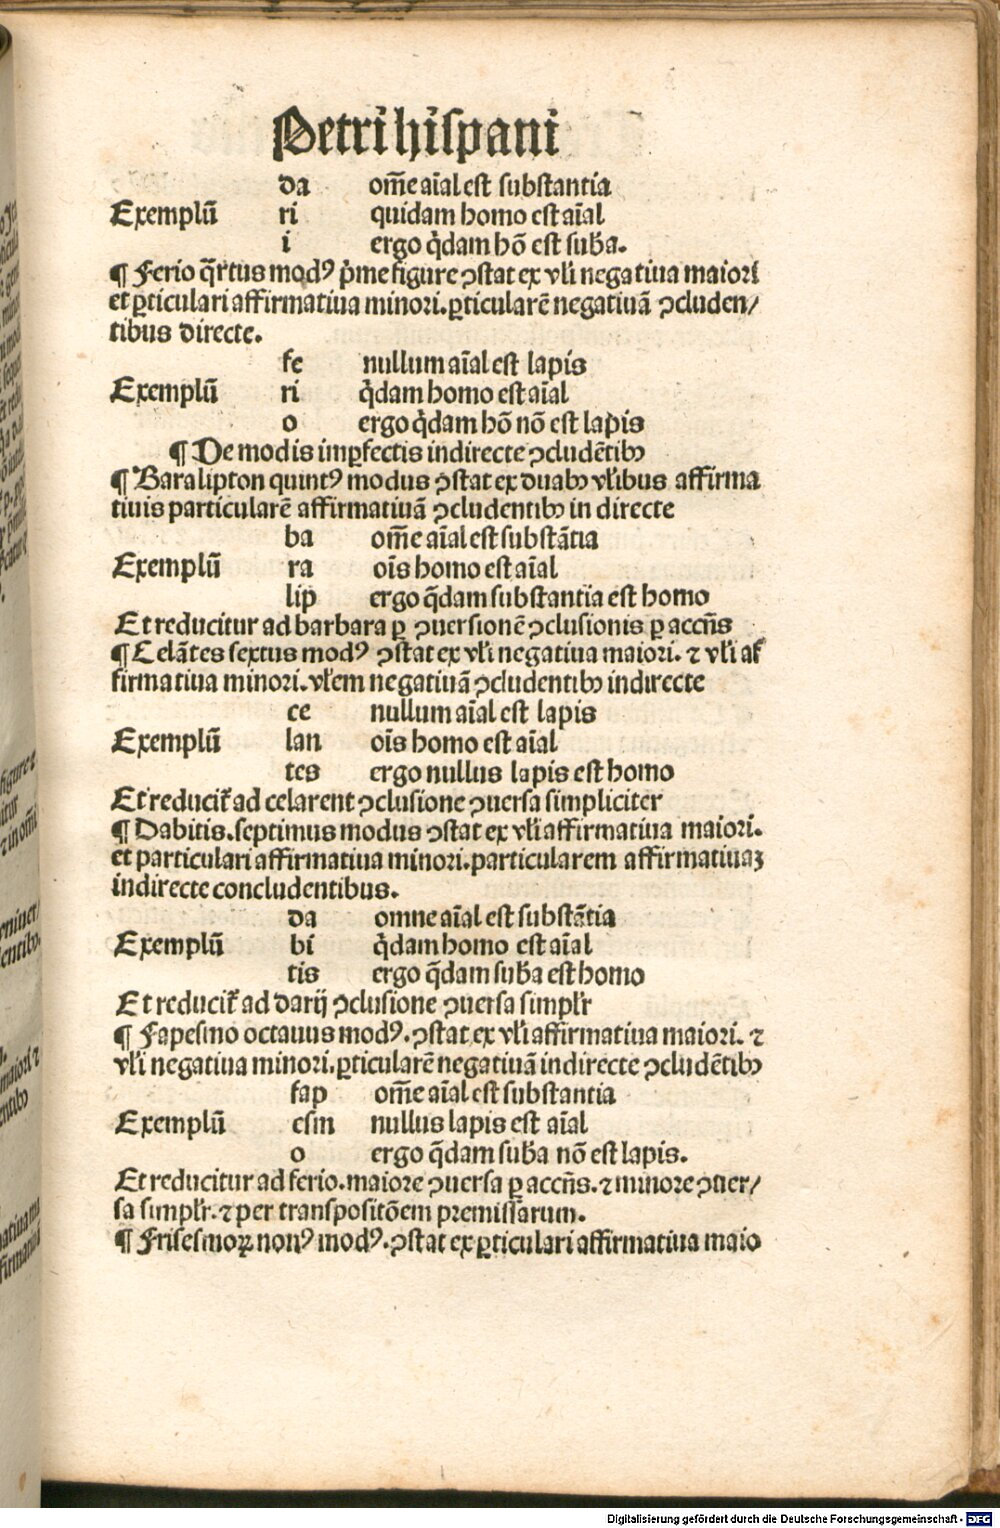 Petri hispani
da om̄e aīal est substantia
Exemplū ri quidam homo est aīal
i ergo q̄dam hō est suba.
¶ Ferio q̄rtus modꝰ p̄me figure ꝯstat ex vl̓i negatiua maiori
et ꝑticulari affirmatiua minori. ꝑticularē negatiuā ꝯcluden/
tibus directe.
fe nullum aīal est lapis
Exemplū ri q̄dam homo est aīal
o ergo q̄dam hō nō est lapis
¶ De modis imꝑfectis indirecte ꝯcludētibꝰ
¶ Baralipton quintꝰ modus ꝯstat ex duabꝰ vl̓ibus affirma
tiuis particularē affirmatiuā ꝯcludentibꝰ in directe
ba om̄e aīal est substātia
Exemplū ra oīs homo est aīal
lip ergo q̄dam substantia est homo
Et reducitur ad barbara ꝑ ꝯuersionē ꝯclusionis ꝑ accn̄s
¶ Celātes sextus modꝰ ꝯstat ex vl̓i negatiua maiori. ⁊ vl̓i af
firmatiua minori. vl̓em negatiuā ꝯcludentibꝰ indirecte
ce nullum aīal est lapis
Exemplū lan oīs homo est aīal
tes ergo nullus lapis est homo
Et reducit̓ ad celarent ꝯclusione ꝯuersa simpliciter
¶ Dabitis. septimus modus ꝯstat ex vl̓i affirmatiua maiori.
et particulari affirmatiua minori. particularem affirmatiuaꝫ
indirecte concludentibus.
da omne aīal est substātia
Exemplū bi q̄dam homo est aīal
tis ergo q̄dam suba est homo
Et reducit̓ ad darij ꝯclusione ꝯuersa simpl̓r
¶ Fapesmo octauus modꝰ. ꝯstat ex vl̓i affirmatiua maiori. ⁊
vl̓i negatiua minori. ꝑticularē negatiuā indirecte ꝯcludētibꝰ
fap om̄e aīal est substantia
Exemplū esm nullus lapis est aīal
o ergo q̄dam suba nō est lapis.
Et reducitur ad ferio. maiore ꝯuersa ꝑ accn̄s. ⁊ minore ꝯuer/
sa simpl̓r. ⁊ per transpositōem premissarum.
¶ Frisesmoꝝ nonꝰ modꝰ. ꝯstat ex ꝑticulari affirmatiua maio
Digitalisierung gefördert durch die Deutsche Forschungsgemeinschaft - DFG